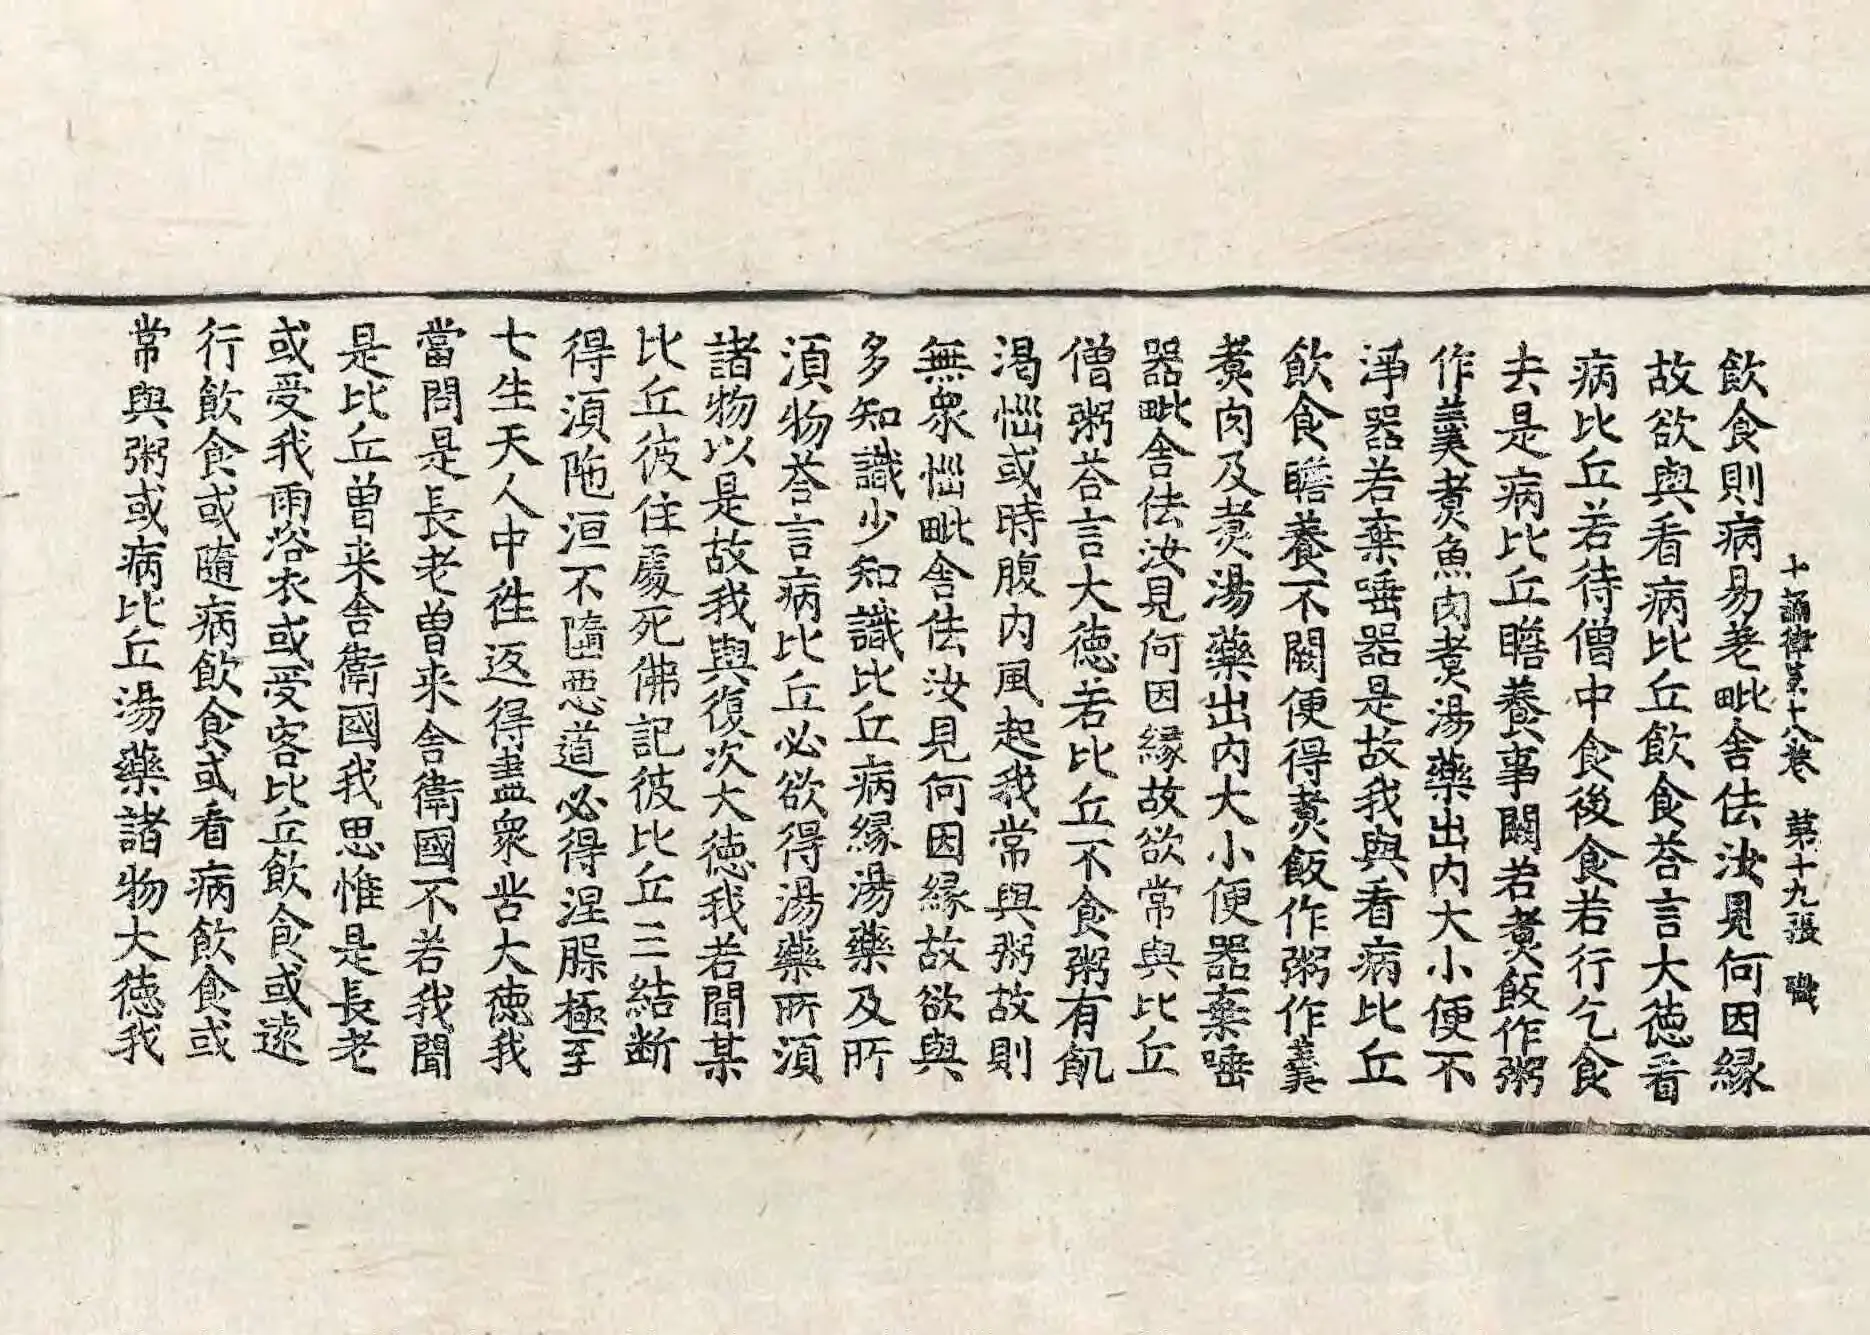 十誦律第十八卷　第十九張　職
飲食則病易差毗舍佉汝見何因緣
故欲與看病比丘飲食荅言大徳看
病比丘若待僧中食後食若行乞食
去是病比丘瞻養事闕若煑飯作粥
作羹煑魚肉煑湯藥出內大小便不
淨器若棄唾器是故我與看病比丘
飲食瞻養不闕便得煑飯作粥作羹
煑肉及煑湯藥出內大小便器棄唾
器毗舍佉汝見何因緣故欲常與比丘
僧粥荅言大徳若比丘不食粥有飢
渴惱或時腹內風起我常與粥故則
無衆惱毗舍佉汝見何因緣故欲與
多知識少知識比丘病緣湯藥及所
湏物荅言病比丘必欲得湯藥所湏
諸物以是故我與復次大徳我若聞某
比丘彼住處死佛記彼比丘三結断
得湏陁洹不墮惡道必得涅槃極至
七生天人中徃返得盡衆苦大徳我
當問是長老曽来舎衛國不若我聞
是比丘曽来舎衛國我思惟是長老
或受我雨浴衣或受客比丘飲食或逺
行飲食或隨病飲食或看病飲食或
常與粥或病比丘湯藥諸物大徳我